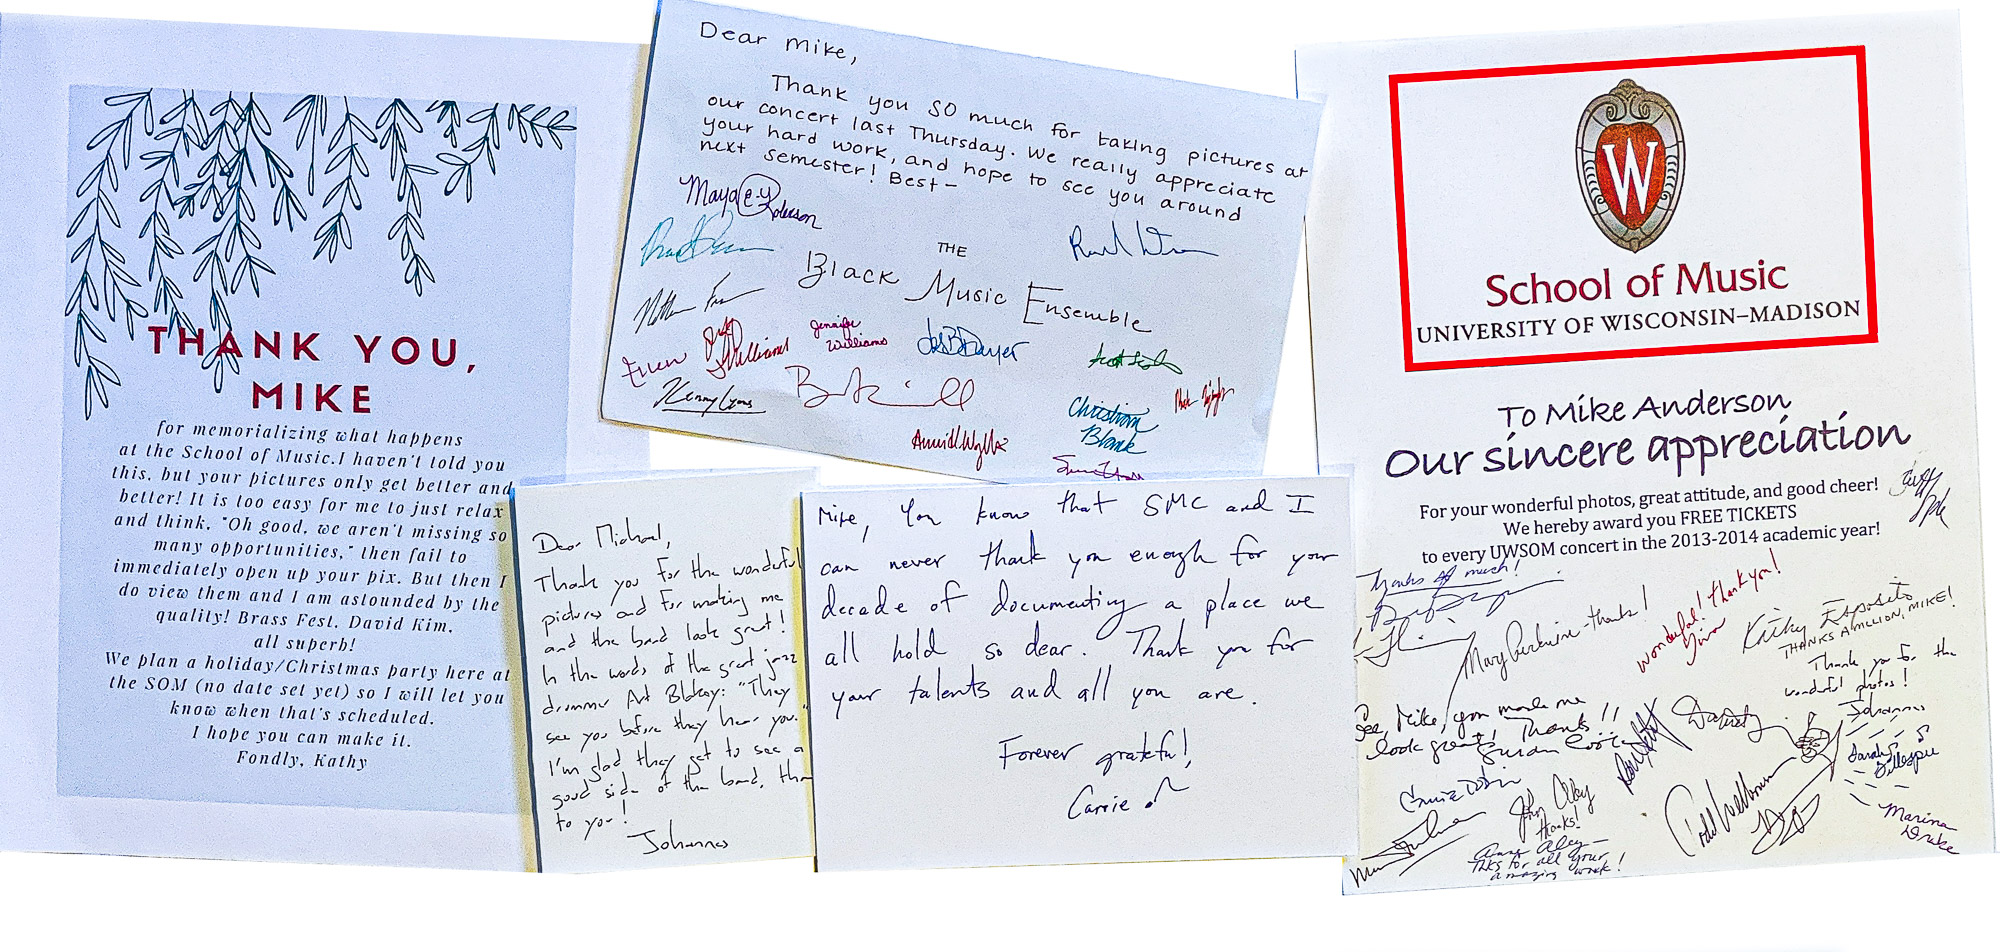 THANK YOU,
MIKE
for memorializing what happens
at the School of Music.I haven't told you
this, but your pictures only get better and
better! It is too easy for me to just relax
and think, "Oh good, we aren't missing so
many opportunities," then fail to
immediately open up your pix. But then I
do view them and I am astounded by the
quality! Brass Fest, David Kim,
all superb!
We plan a holiday/Christmas party here at
the SOM (no date set yet) so I will let you
know when that's scheduled.
I hope you can make it.
Fondly, Kathy
Dear Mike,
Thank you SO much for taking pictures at
our concert last Thursday. We really appreciate
your hard work, and hope to see you around
next semester! Best-
Maya
THE
Black Music Ensemble
Jennifer
Williams
Williams
Kenny Lyons
Christian
Blank
Dear Michael,
Thank you for the wonderful
pictures and for making me
and the band look great!
In the words of the great jazz
drummer Art Blakey: "They
see you before they hear you."
I'm glad they get to see a
good side of the band, thx
to you!
Johannes
Mike, You know that SMC and I
can never thank you enough for your
decade of documenting a place we
all hold so dear. Thank you for
your talents and all you are.
Forever grateful!
Carrie
W
School of Music
UNIVERSITY OF WISCONSIN–MADISON
To Mike Anderson
Our sincere appreciation
For your wonderful photos, great attitude, and good cheer!
We hereby award you FREE TICKETS
to every UWSOM concert in the 2013-2014 academic year!
Thanks so much!
Mary Perkinson - thanks!
Wonderful! thank you!
Kathy Esposito
THANKS A MILLION, MIKE!
Thank you for the
wonderful photos!
Johannes
See, Mike, you made me
look great! Thanks!!
Susan Cook
Sarah
Gillespie
Marina
Drake
Todd Welbourne
John Aley
thanks!
Anne Aley-
Thks for all your
amazing work!